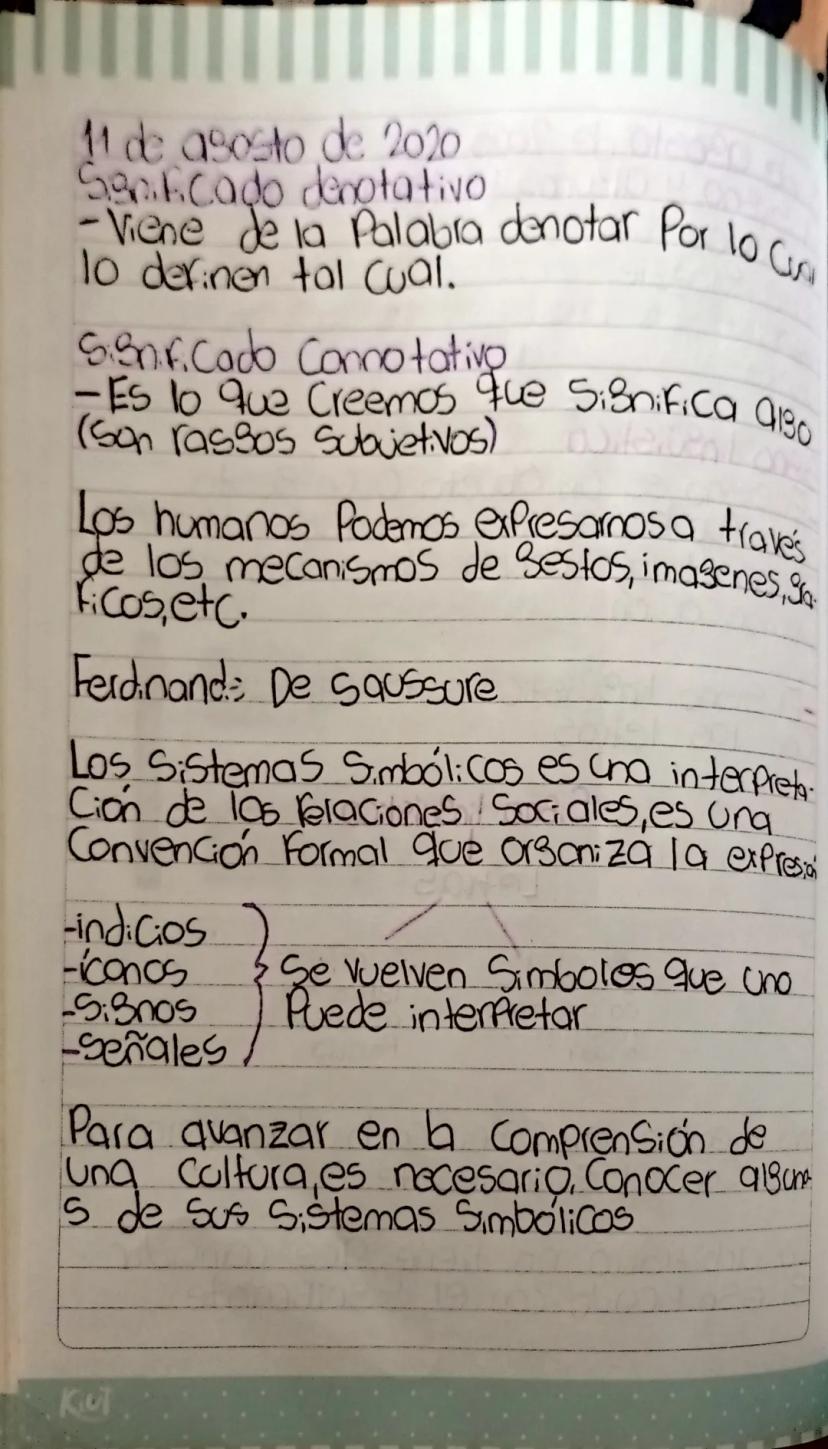 11 de agosto de 2020
Significado denotativo
-Viene de la Palabra denotar Por lo cual
lo definen tal cual.
Significado Connotativo
-Es lo que Creemos que Significa algo
(Son rasgos Subjetivos)
Los humanos Podemos expresarnos a través
de los mecanismos de gestos, imagenes, gra-
ficos, etc.
Ferdinand: De Saussure
Los Sistemas Simbólicos es una interpreta-
Ción de las relaciones Sociales, es una
Convención Formal que organiza la expresión
-indicios
-íconos
-Signos
-Señales
Se vuelven Simbolos que uno
Puede interpretar
Para avanzar en la Comprensión de
una cultura, es necesario, Conocer alguno
s de sus Sistemas Simbólicos
Kiut